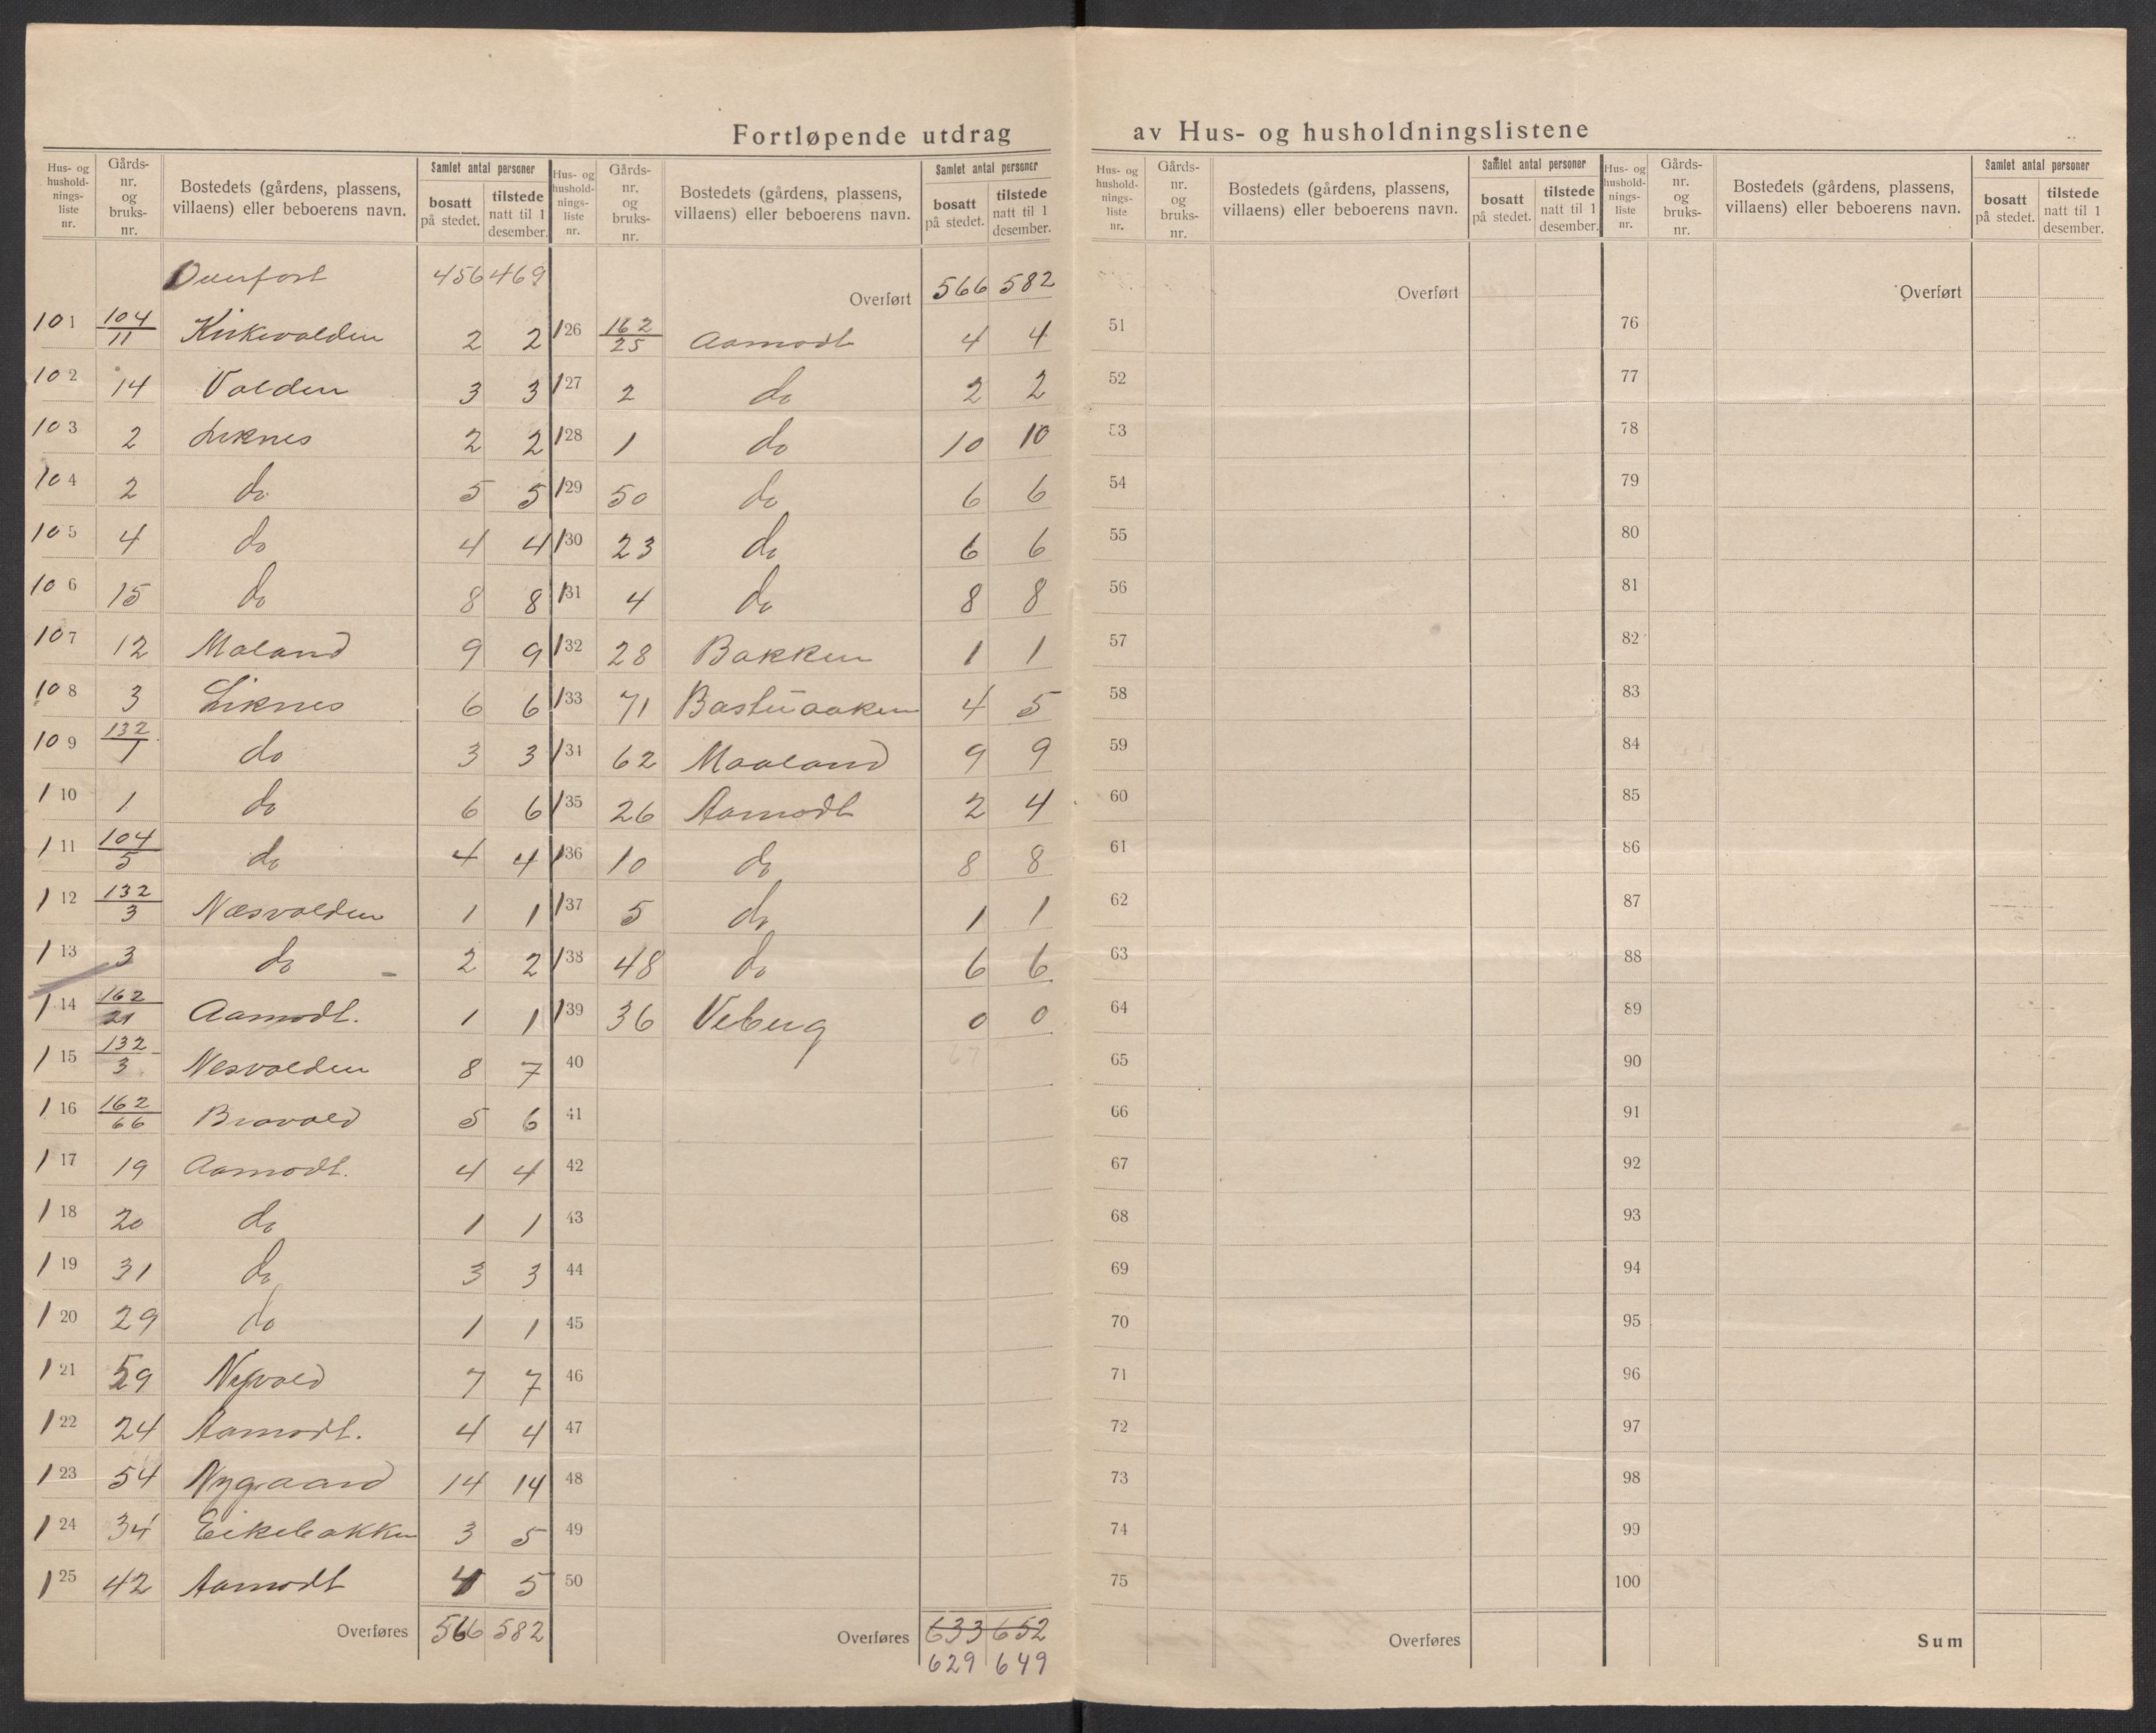 Fortløpende utdrag av Hus- og husholdningslistene
Hus- og hushold-nings-liste nr. Gårds-nr. og bruks-nr. Bostedets (gårdens, plassens, villaens) eller beboerens navn. Samlet antal personer bosatt på stedet. tilstede natt til 1 desember.
Overført 456 469
101 104/11 Kirkevolden 2 2
102 14 Volden 3 3
103 2 Liknes 2 2
104 2 do 5 5
105 4 do 4 4
106 15 do 8 8
107 12 Moland 9 9
108 3 Liknes 6 6
109 132/1 do 3 3
110 1 do 6 6
111 104/5 do 4 4
112 132/3 Næsvolden 1 1
113 3 do 2 2
114 162/21 Aamodt. 1 1
115 132/3 Nesvolden 8 7
116 162/66 Brovold 5 6
117 19 Aamodt. 4 4
118 20 do 1 1
119 31 do 3 3
120 29 do 1 1
121 59 Nyvold 7 7
122 24 Aamodt. 4 4
123 54 Nygaard 14 14
124 34 Eikebakken 3 5
125 42 Aamodt 4 5
Overføres 566 582
Hus- og hushold-nings-liste nr. Gårds-nr. og bruks-nr. Bostedets (gårdens, plassens, villaens) eller beboerens navn. Samlet antal personer bosatt på stedet. tilstede natt til 1 desember.
Overført 566 582
126 162/25 Aamodt 4 4
127 2 do 2 2
128 1 do 10 10
129 50 do 6 6
130 23 do 6 6
131 4 do 8 8
132 28 Bakken 1 1
133 71 4 5
134 62 Maaland 9 9
135 26 Aamodt 2 4
136 10 do 8 8
137 5 do 1 1
138 48 do 6 6
139 36 Veberg 0 0
40
41
42
43
44
45
46
47
48
49
50
Overføres 633 652
629 649
Hus- og hushold-nings-liste nr. Gårds-nr. og bruks-nr. Bostedets (gårdens, plassens, villaens) eller beboerens navn. Samlet antal personer bosatt på stedet. tilstede natt til 1 desember.
Overført
51
52
53
54
55
56
57
58
59
60
61
62
63
64
65
66
67
68
69
70
71
72
73
74
75
Overføres
Hus- og hushold-nings-liste nr. Gårds-nr. og bruks-nr. Bostedets (gårdens, plassens, villaens) eller beboerens navn. Samlet antal personer bosatt på stedet. tilstede natt til 1 desember.
Overført
76
77
78
79
80
81
82
83
84
85
86
87
88
89
90
91
92
93
94
95
96
97
98
99
100
Sum